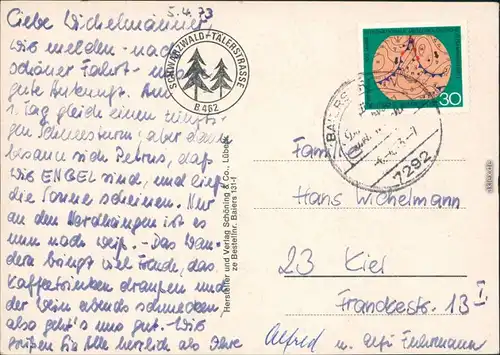 5.4.73
Liebe Wichelmänner,
wir melden - nach
schöner Fahrt -
gute Ankunft. Am
1. Tag gleich einen
Schneesturm, aber dann
besann sich Petrus, daß
wir ENGEL sind, und ließ
die Sonne scheinen. Nur
an den Nordhängen ist es
nun noch weiß. - Das Wan-
dern bringt viel Freude, das
Kaffeetrinken draußen und
der Wein abends schmecken,
also geht's uns gut. Wir
grüßen Sie Alle herzlich als Ihre
Alfred u. Fuhrmann
SCHWARZWALD-TÄLERSTRASSE
B 462
Hersteller und Verlag Schöning & Co., Lübeck
ze Bestellnr. Baiers 131-f
30
BAIERS
7292
Familie
Hans Wichelmann
23 Kiel
Franckestr. 13 I.